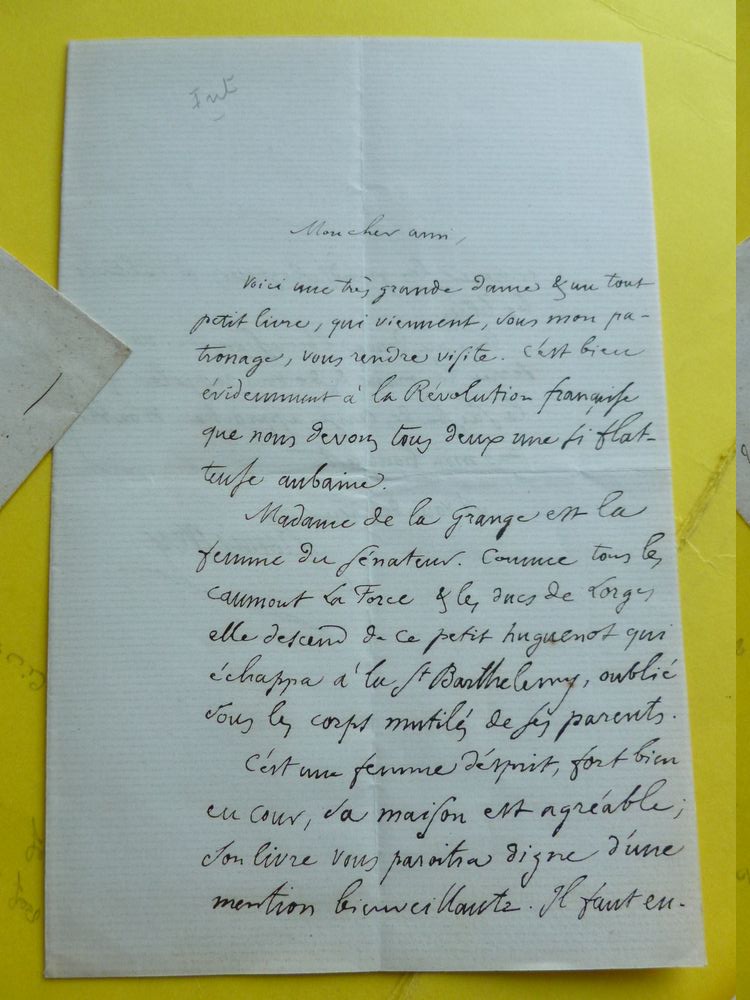 Mon cher ami,
Voici une très grande dame & un tout
petit livre, qui viennent, sous mon pa-
tronage, vous rendre visite. C'est bien
évidemment à la Révolution française
que nous devons tous deux une si flat-
teuse aubaine.
Madame de la Grange est la
femme du sénateur. Comme tous les
Caumont La Force & les ducs de Lorges
elle descend de ce petit huguenot qui
échappa à la St Barthelemy, oublié
sous les corps mutilés de ses parents.
C'est une femme d'esprit, fort bien
en cour, sa maison est agréable;
son livre vous paroitra digne d'une
mention bienveillante. Il faut en-